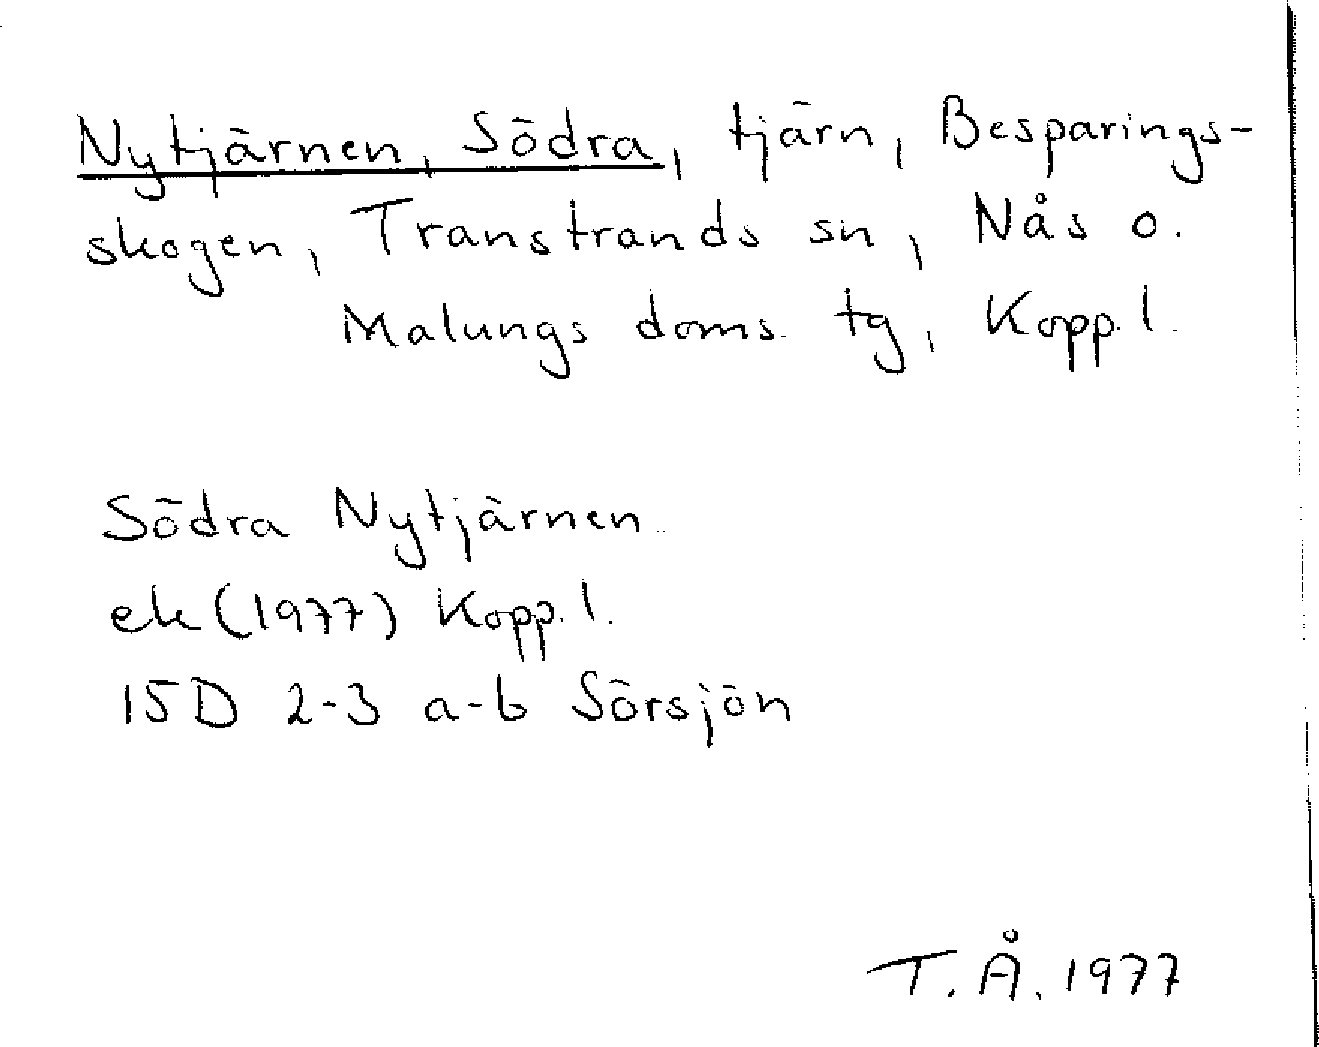 Nytjärnen, Södra, tjärn, Besparings-
skogen, Transtrands sn, Nås o.
Malungs doms. tg, Kopp. l.
Södra Nytjärnen.
ek (1977) Kopp. l.
15D 2-3 a-b Sörsjön
T. Å. 1977